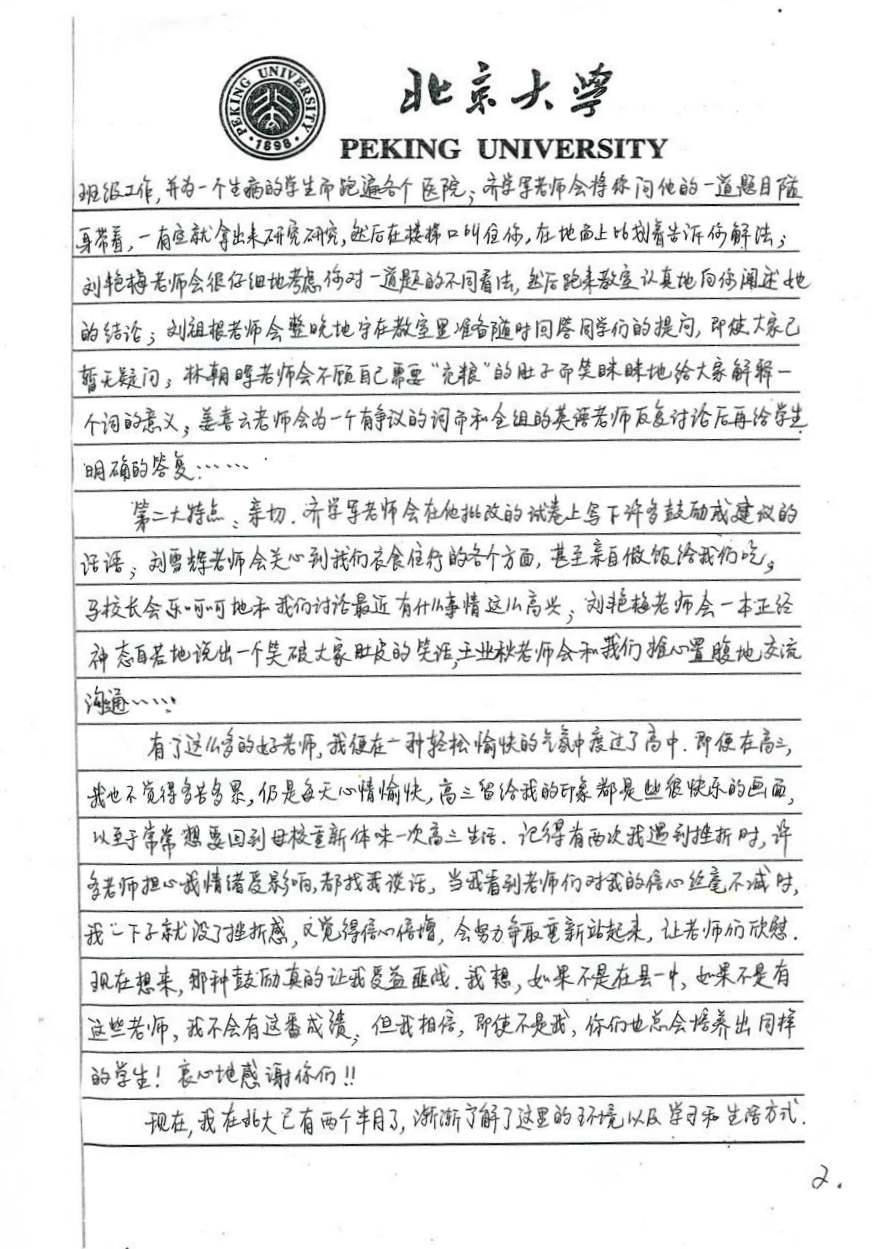 PEKING UNIVERSITY
1898
北京大学
PEKING UNIVERSITY
班级工作,并为一个生病的学生而跑遍各个医院;齐学军老师会将你问他的一道题目随
身带着,一有空就拿出来研究研究,然后在楼梯口叫住你,在地面上比划着告诉你解法;
刘艳梅老师会很仔细地考虑你对一道题的不同看法,然后跑来教室认真地向你阐述她
的结论;刘祖根老师会整晚地守在教室里准备随时回答同学们的提问,即使大家已
暂无疑问;林朝晖老师会不顾自己需要“充粮”的肚子而笑眯眯地给大家解释一
个词的意义;姜喜云老师会为一个有争议的词而和全组的英语老师反复讨论后再给学生
明确的答复……
第二大特点:亲切.齐学军老师会在他批改的试卷上写下许多鼓励或建议的
话语;刘雪辉老师会关心到我们衣食住行的各个方面,甚至亲自做饭给我们吃;
马校长会乐呵呵地和我们讨论最近有什么事情这么高兴;刘艳梅老师会一本正经
神态自若地说出一个笑破大家肚皮的笑话,王业秋老师会和我们推心置腹地交流
沟通……
有了这么多的好老师,我便在一种轻松愉快的气氛中度过了高中.即便在高三,
我也不觉得多苦多累,仍是每天心情愉快,高三留给我的印象都是些很快乐的画面,
以至于常常想要回到母校重新体味一次高三生活.记得有两次我遇到挫折时,许
多老师担心我情绪受影响,都找我谈话,当我看到老师们对我的信心丝毫不减时,
我一下子就没了挫折感,又觉得信心倍增,会努力争取重新站起来,让老师们欣慰.
现在想来,那种鼓励真的让我受益匪浅.我想,如果不是在县一中,如果不是有
这些老师,我不会有这番成绩;但我相信,即使不是我,你们也总会培养出同样
的学生!衷心地感谢你们!!
现在,我在北大已有两个半月了,渐渐了解了这里的环境以及学习和生活方式.
2.